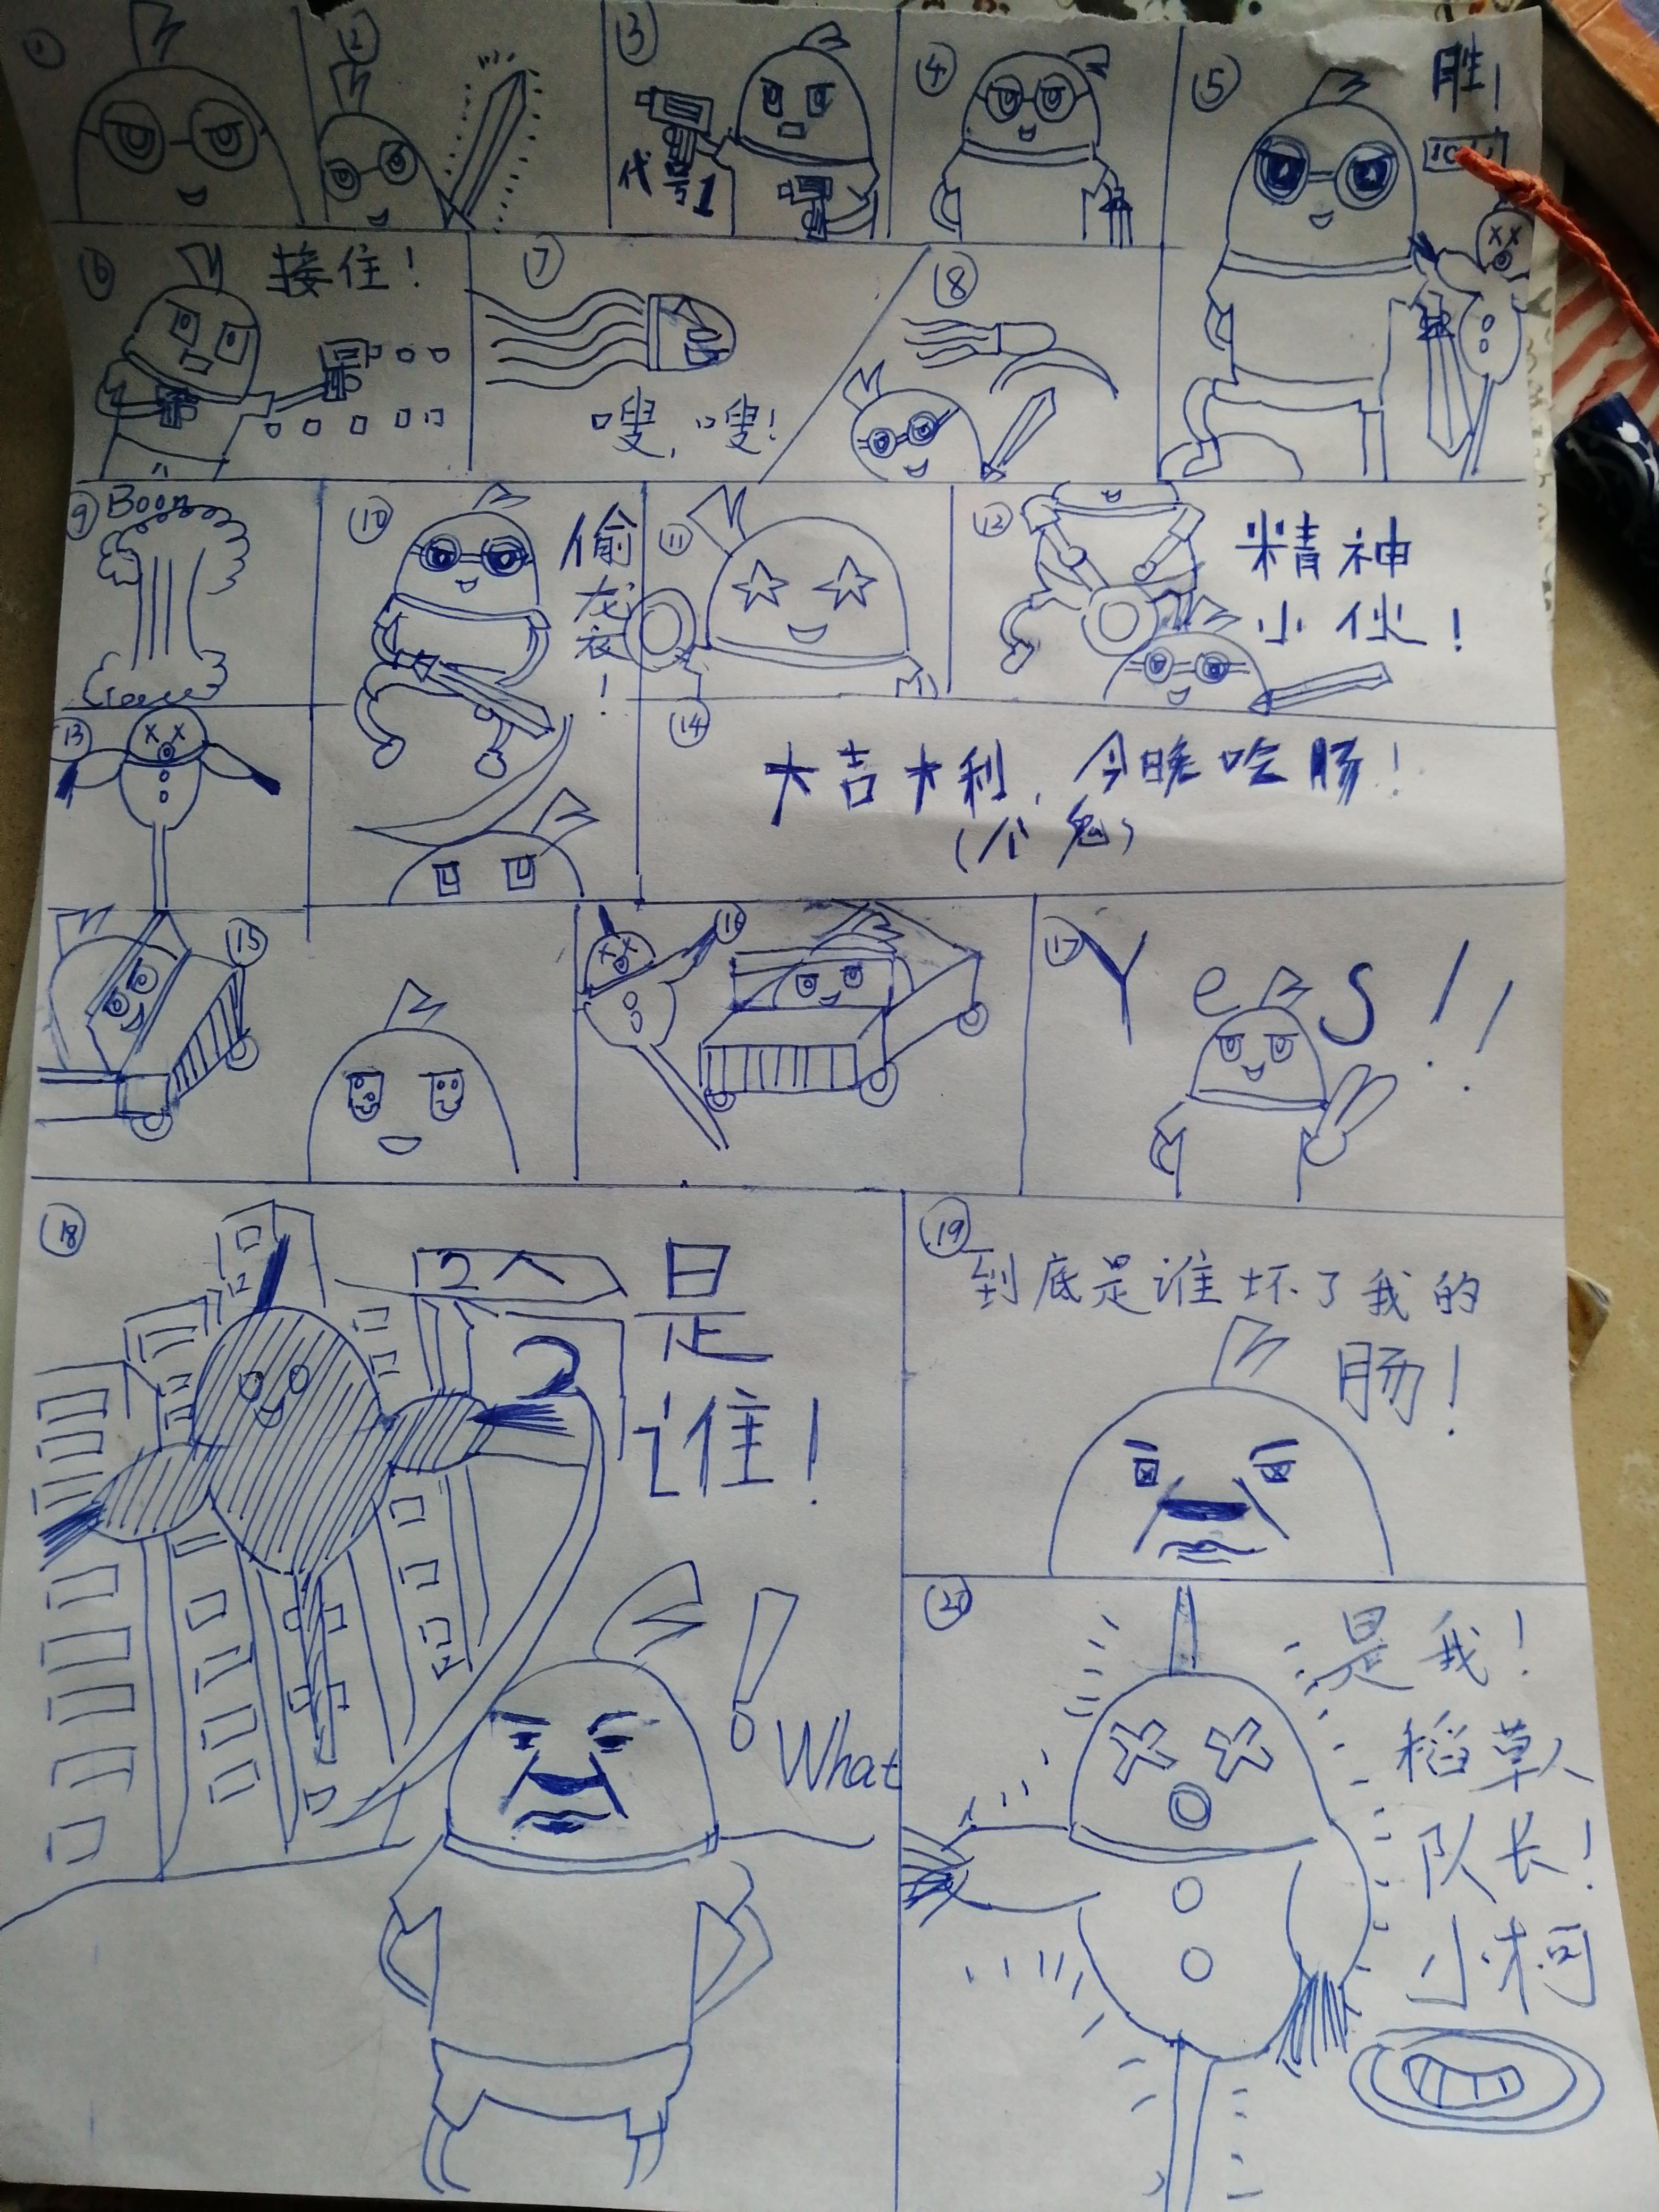 ①
②
③
代号1
④
⑤
胜!
⑥
接住!
⑦
嗖,嗖!
⑧
⑨
Boon
⑩
偷
衣
!
⑪
⑫
精神
小伙!
⑬
⑭
大吉大利,今晚吃肠!
(个鬼)
⑮
⑯
⑰
Yes!!
⑱
2人
2
是
谁!
!
What
⑲
到底是谁坏了我的
肠!
⑳
是我!
稻草人
队长!
小柯